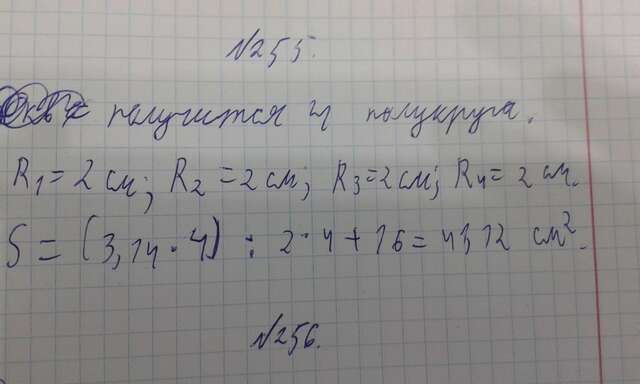 №255.
получится 4 полукруга.
R₁ = 2 см; R₂ = 2 см; R₃ = 2 см; R₄ = 2 см.
S = (3,14 · 4) : 2 · 4 + 16 = 41,12 см².
№256.